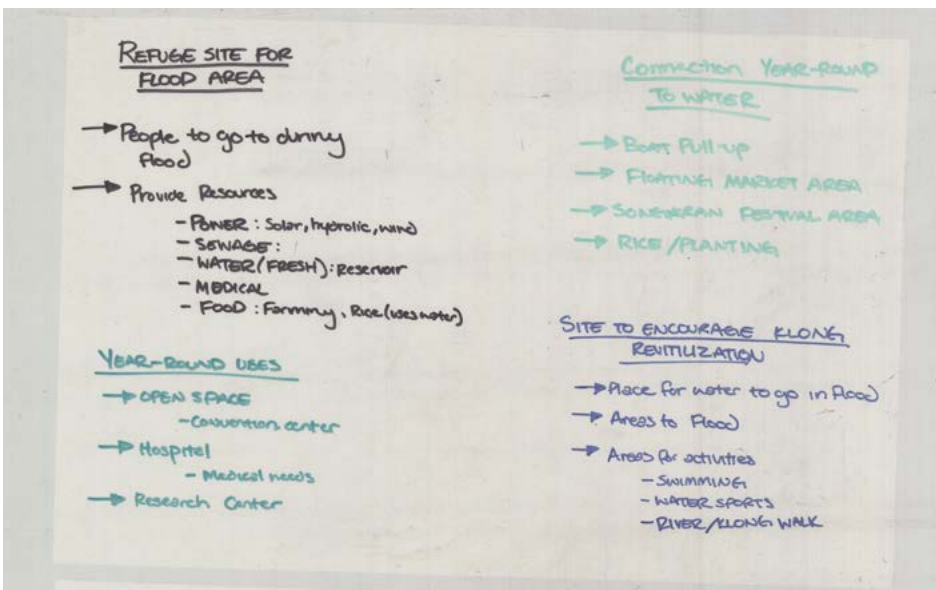 REFUGE SITE FOR
FLOOD AREA
→ People to go to during
flood
→ Provide Resources
- POWER : Solar, hydrolic, wind
- SEWAGE :
- WATER (FRESH) : Reservoir
- MEDICAL
- FOOD : Farming, Rice (uses water)
YEAR-ROUND USES
→ OPEN SPACE
- Convention center
→ Hospital
- Medical needs
→ Research Center
Connection YEAR-ROUND
TO WATER
→ BOAT PULL-UP
→ FLOATING MARKET AREA
→ SONGKRAN FESTIVAL AREA
→ RICE/PLANTING
SITE TO ENCOURAGE KLONG
REVITILIZATION
→ Place for water to go in flood
→ Areas to Flood
→ Areas for activities
- SWIMMING
- WATER SPORTS
- RIVER/KLONG WALK